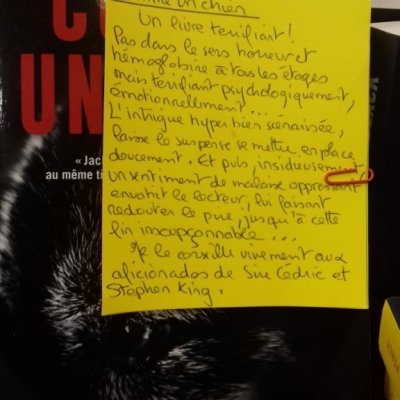 Comme un chien
Un livre terrifiant!
Pas dans le sens horreur et
hémoglobine à tous les étages
mais terrifiant psychologiquement,
émotionnellement...
L'intrigue hyper bien scénarisée,
laisse le suspense se mettre en place
doucement. Et puis, insidieusement
un sentiment de malaise oppressant
envahit le lecteur, lui faisant
redouter le pire, jusqu'à cette
fin insoupçonnable...
Je le conseille vivement aux
aficionados de Sire Cédric et
Stephen King.
CO
UN
« Jac
au même ti